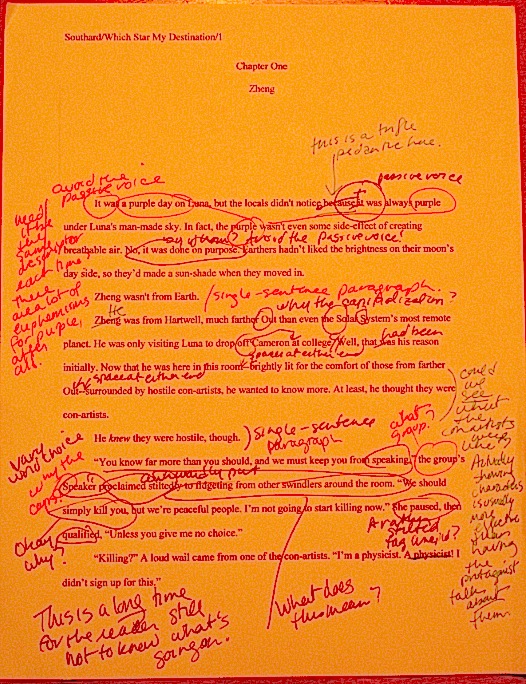 Southard/Which Star My Destination/1
Chapter One
Zheng
this is a trifle
pedantic here.
avoid the
passive voice
passive voice
It was a purple day on Luna, but the locals didn't notice because it was always purple
under Luna's man-made sky. In fact, the purple wasn't even some side-effect of creating
Avoid the Passive voice!
breathable air. No, it was done on purpose. Earthers hadn't liked the brightness on their moon's
day side, so they'd made a sun-shade when they moved in.
need
the
same
descriptor
each time
There
are a lot of
euphemisms
for purple,
after
all.
Zheng wasn't from Earth.
/single-sentence paragraph.
why the capitalization?
He
Zheng was from Hartwell, much farther Out than even the Solar System's most remote
planet. He was only visiting Luna to drop off Cameron at college. Well, that was his reason
had been
space at either end
initially. Now that he was here in this room–brightly lit for the comfort of those from farther
space at either end
Out–surrounded by hostile con-artists, he wanted to know more. At least, he thought they were
con-artists.
could
we
see
what
the
con artists
Actively
showing
characters
is usually
more
effective
than
having
the
protagonist
talk
about
them.
He knew they were hostile, though.
)single-sentence
paragraph
what
group.
"You know far more than you should, and we must keep you from speaking," the group's
vary
word choice
why the
caps?
awkwardly put
Speaker proclaimed stiltedly to fidgeting from other swindlers around the room. "We should
simply kill you, but we're peaceful people. I'm not going to start killing now." She paused, then
qualified, "Unless you give me no choice."
A rather
stilted
tag
Okay,
why?
"Killing?" A loud wail came from one of the con-artists. "I'm a physicist. A physicist! I
didn't sign up for this,"
What does
this mean?
This is a long time
for the reader still
not to know what's
going on.